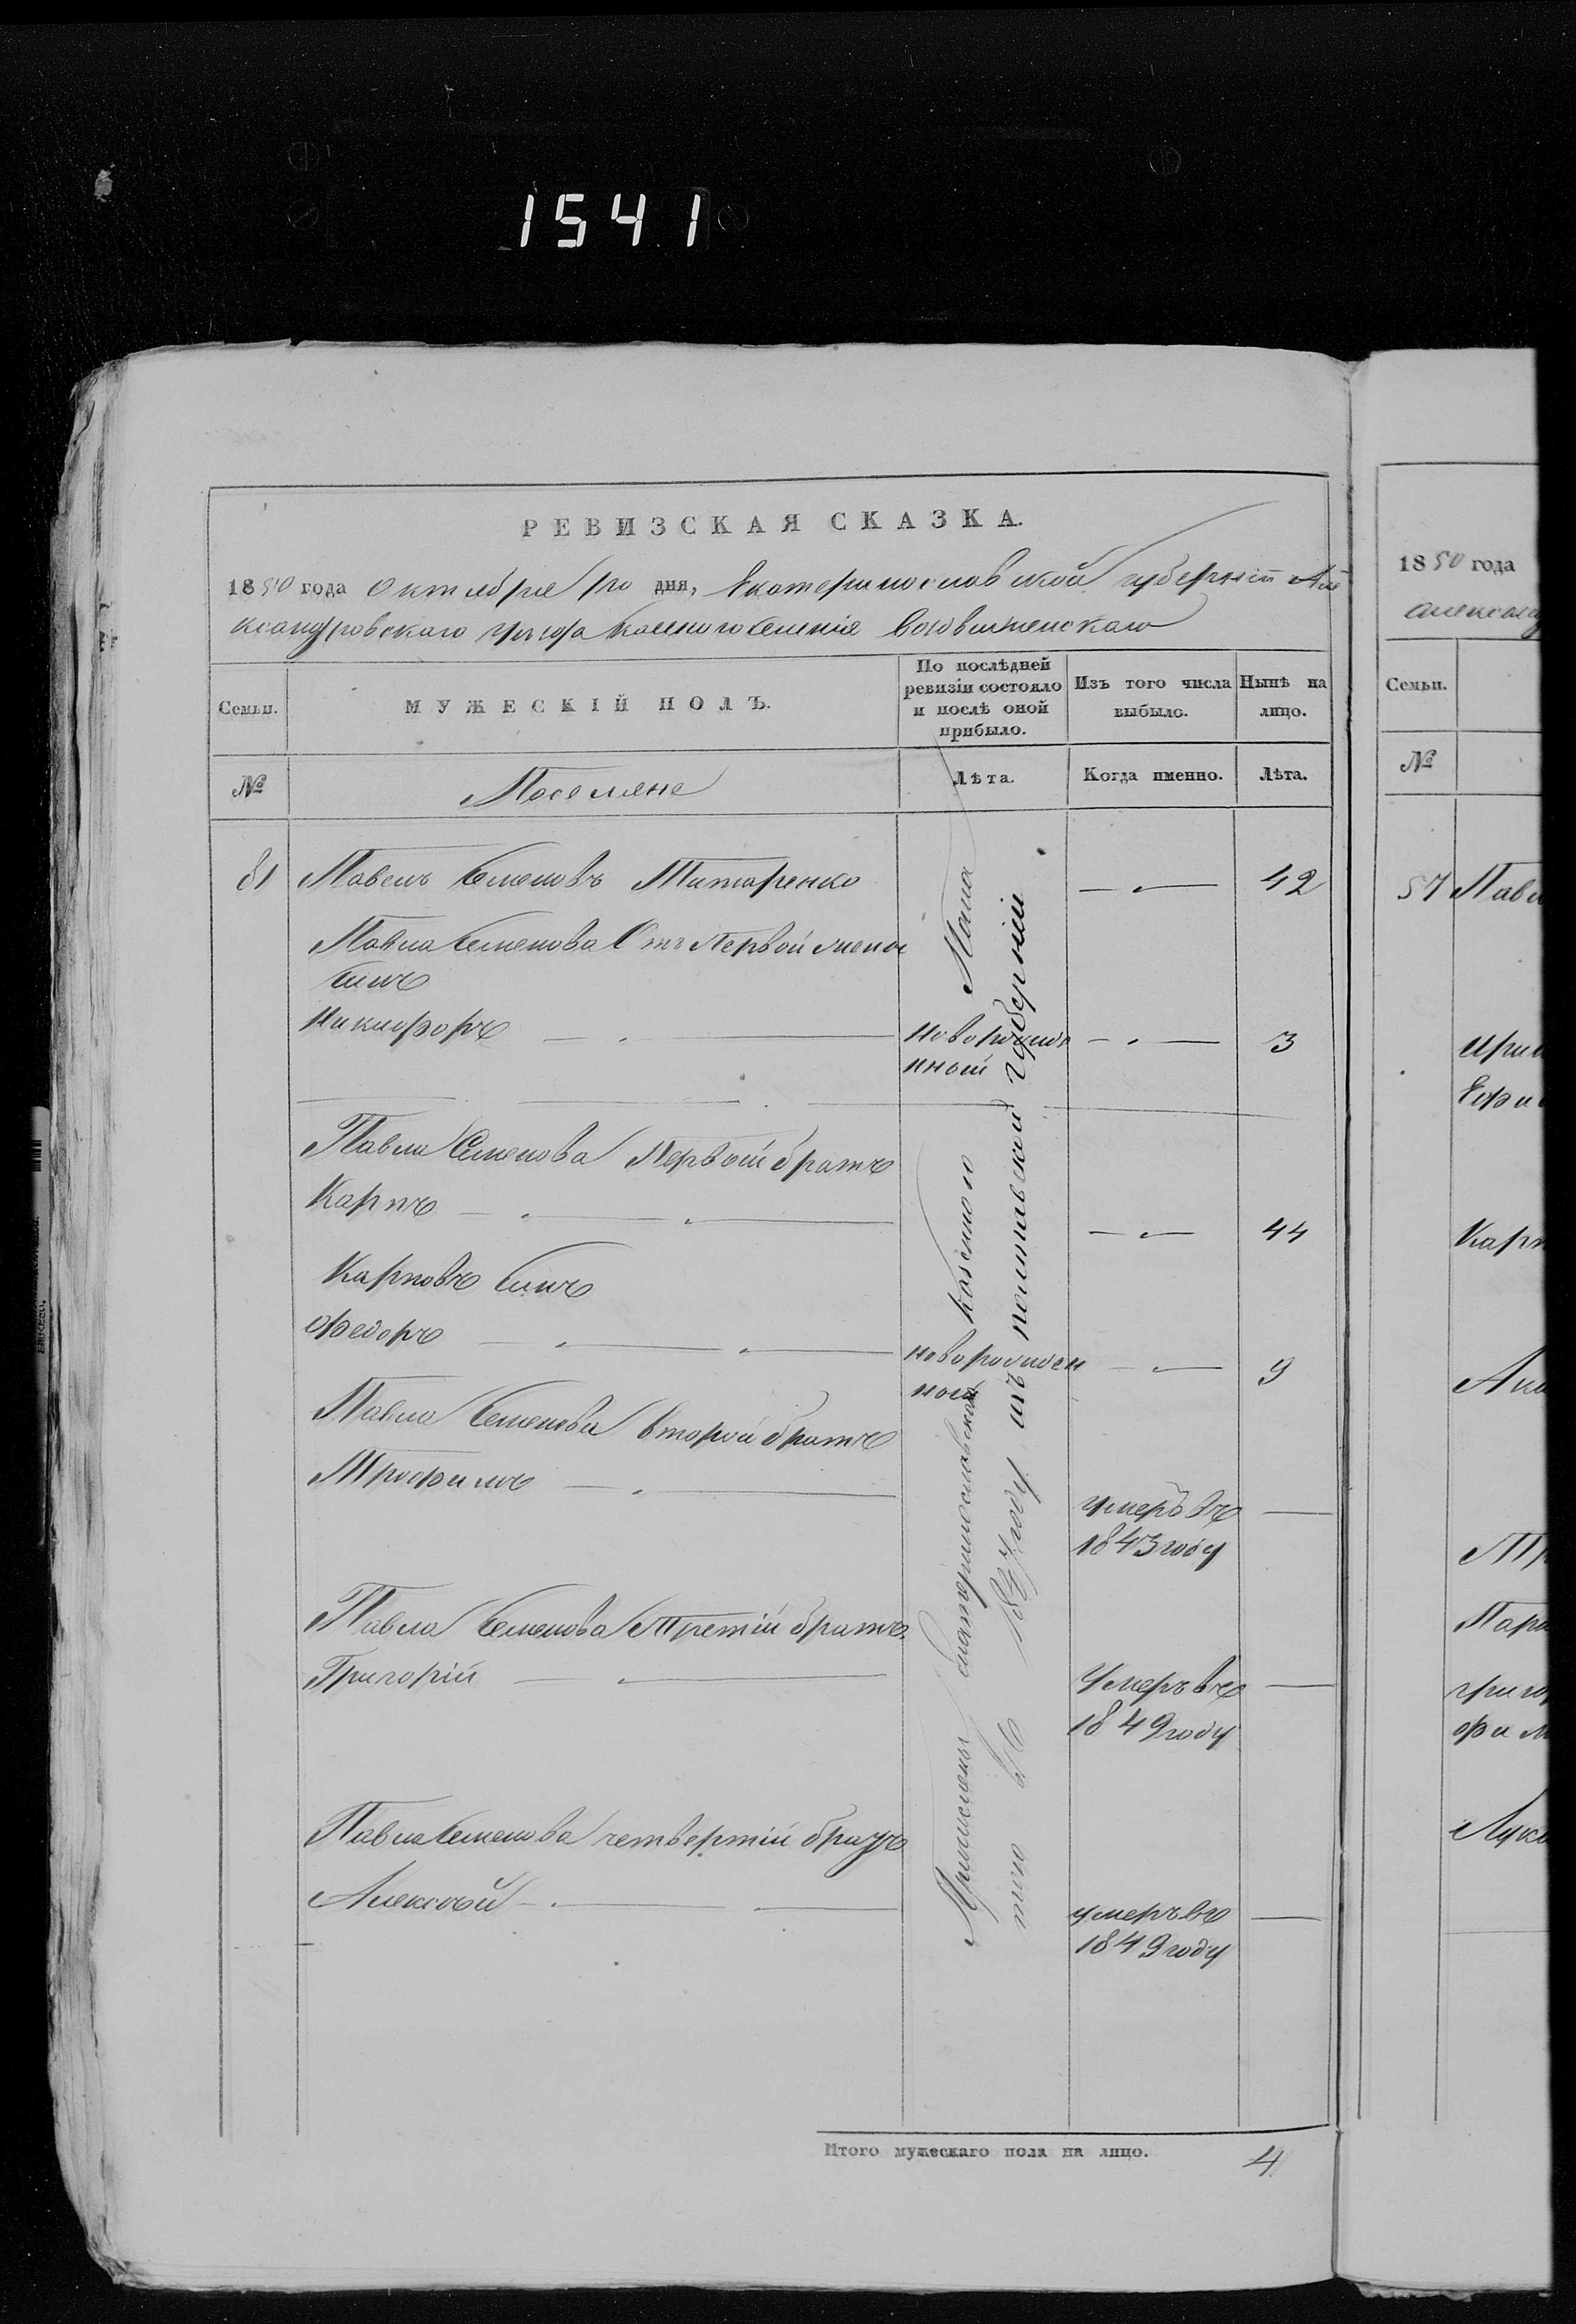 1541
РЕВИЗСКАЯ СКАЗКА.
1850 года Октября дня, Екатеринославской губерніи Але
ксандровскаго уѣзда Казеннаго селенія Воздвиженскаго
Семьи.
МУЖЕСКІЙ ПОЛЪ.
По послѣдней
ревизіи состояло
и послѣ оной
прибыло.
Изъ того числа
выбыло.
Нынѣ на
лицо.
№
Поселяне
Лѣта.
Когда именно.
Лѣта.
Павелъ Семеновъ Титаренко
42
Павла Семенова Отъ Первой жены
сынъ
Никифоръ
новорожде
нной
3
Павла Семенова Первой братъ
Карпъ
44
Карповъ сынъ
Федоръ
новорожден
ной
9
Павла Семенова второй братъ
Трофимъ
умеръ въ
1843 году
Павла Семенова Третій братъ
Григорій
Умеръ въ
1849 году
Павла Семенова четвертій братъ
Алексѣй
умеръ въ
1849 году
Причислены Екатеринославской Казенною Пала
тою въ году изъ полтавской губерніи
Итого мужескаго пола на лицо.
4
1850 года
александ
Семьи.
№
57 Павл
Ефи
Карп
григо
Лук